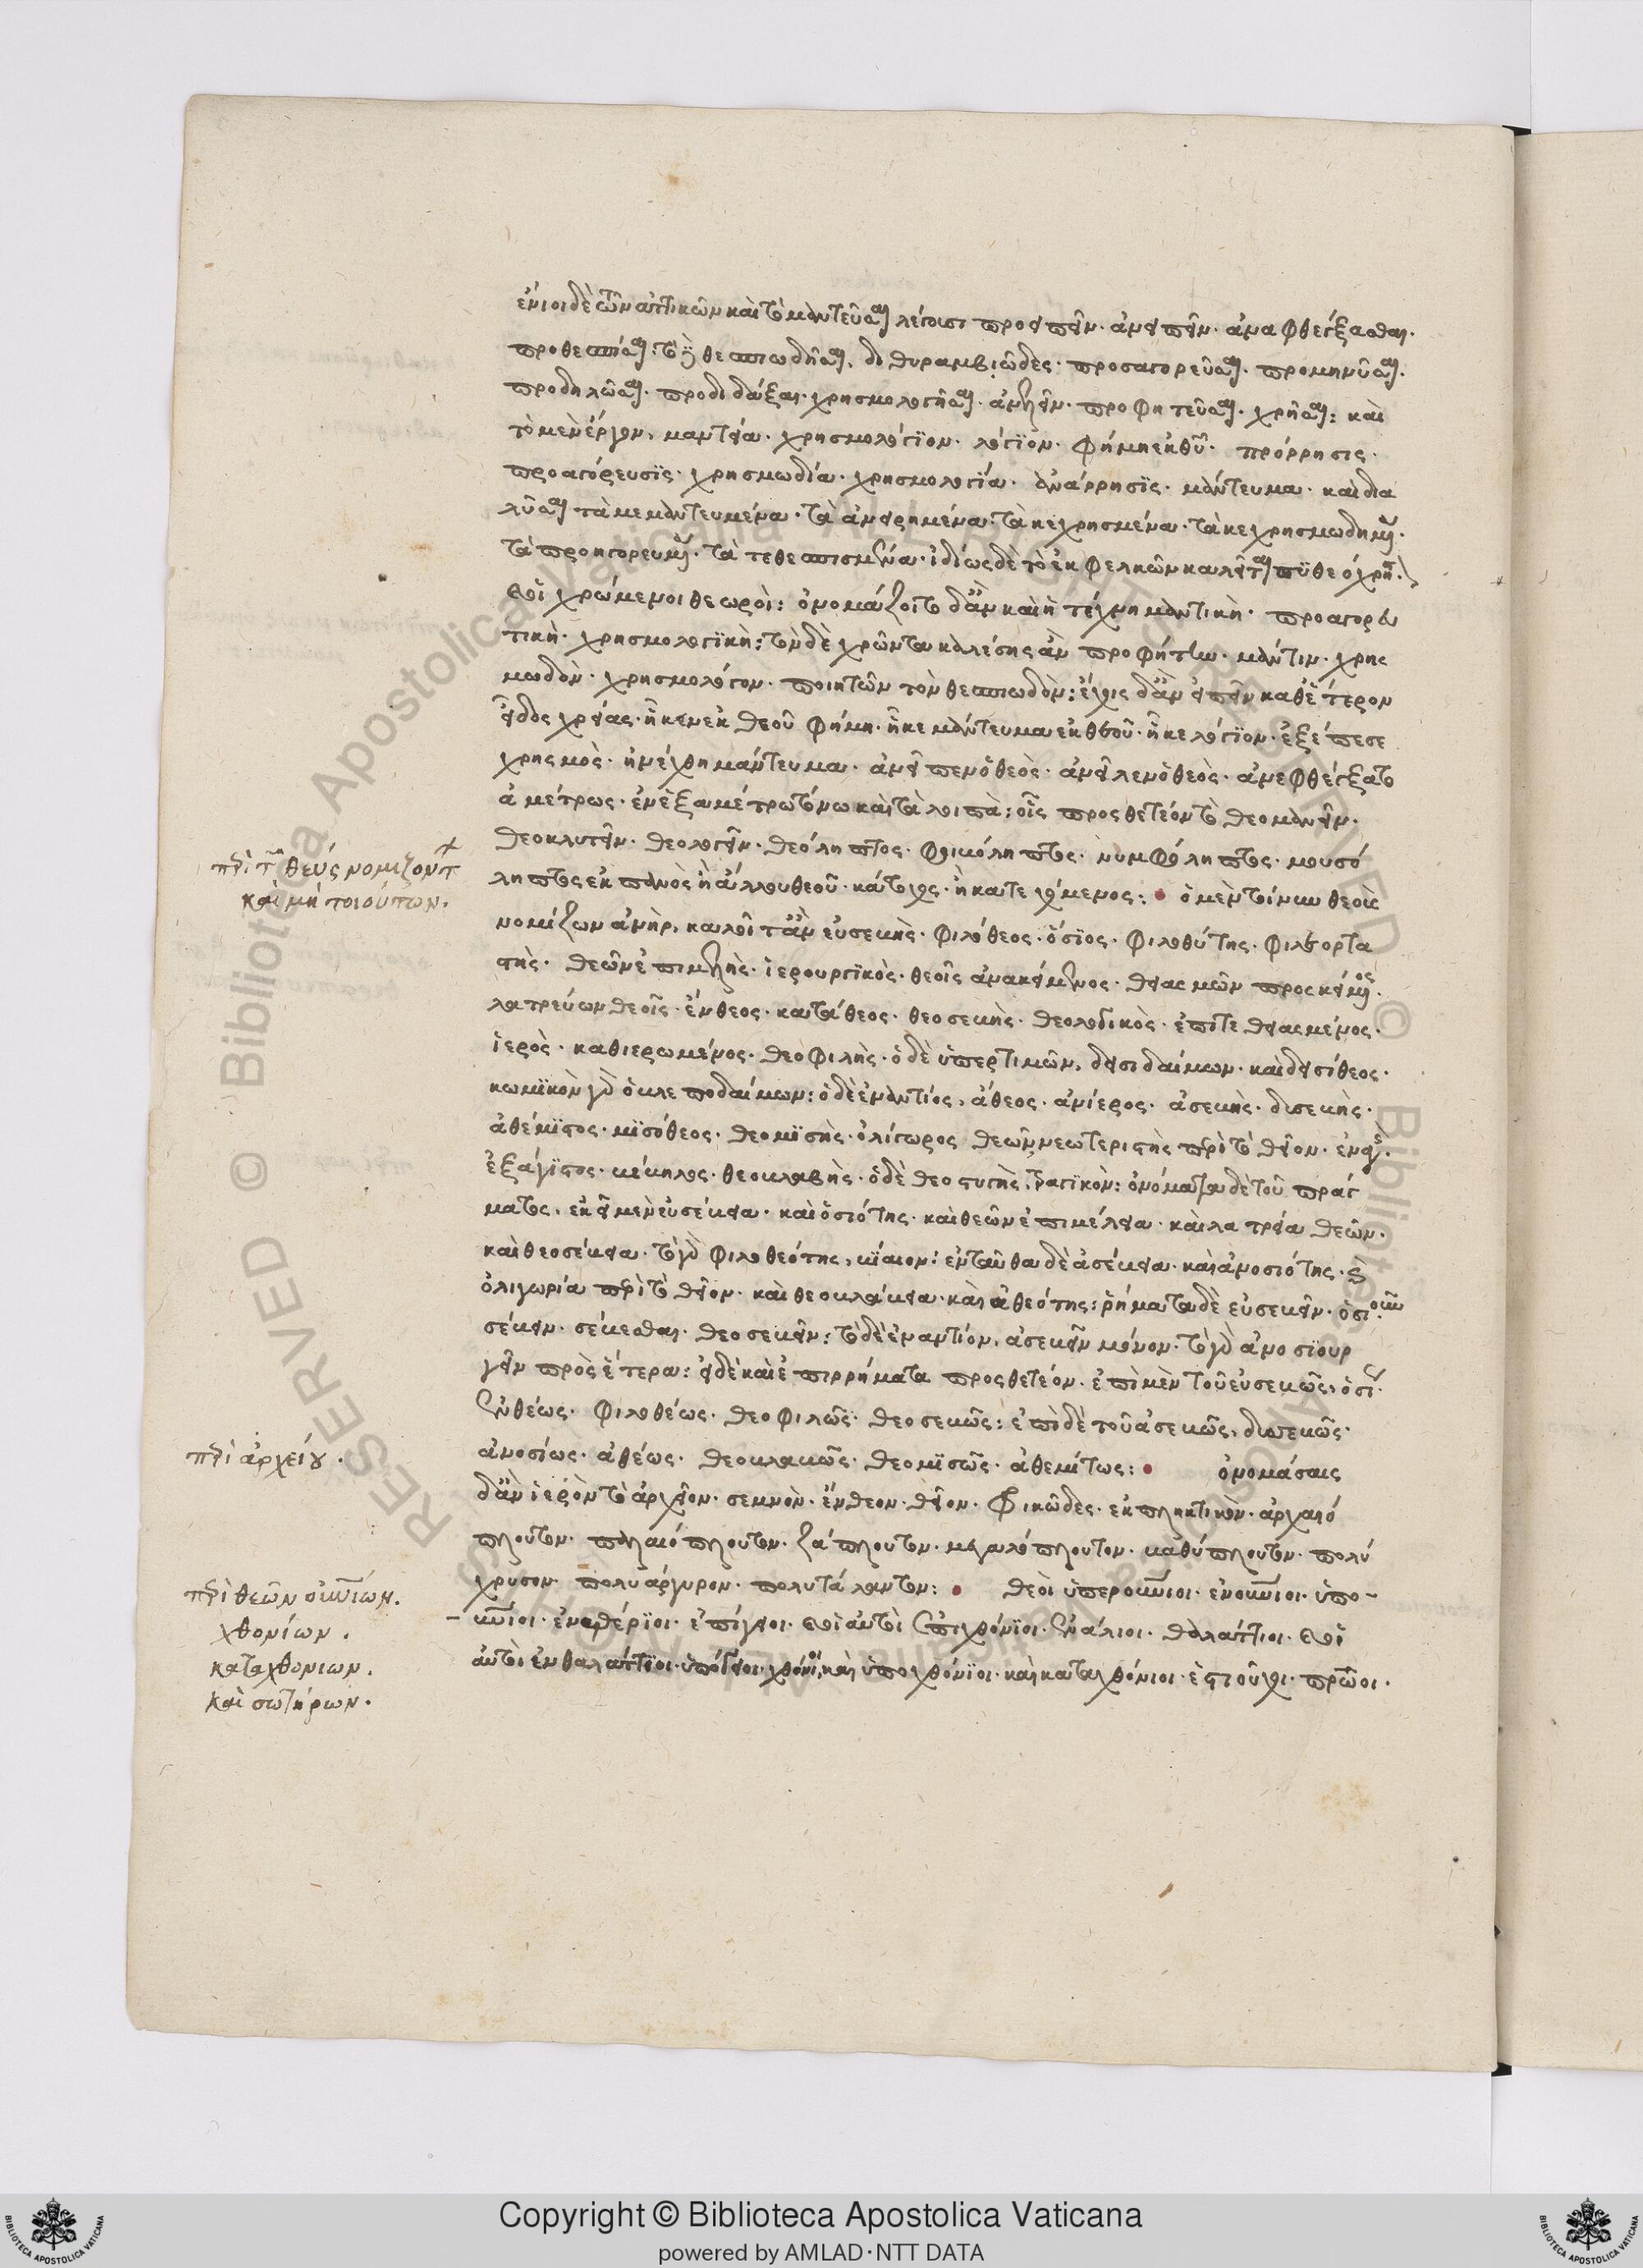 ἔνιοι δὲ τῶν ἀττικῶν καὶ τὸ μαντεῦσαι λέγουσι προειπεῖν· ἀνειπεῖν· ἀναφθέγξασθαι·
προθεσπίσαι· θεσπιωδῆσαι· διθυραμβιῶδες· προσαγορεῦσαι· προμηνῦσαι·
προδηλῶσαι· προδιδάξαι· χρησμολογῆσαι· ἀνελεῖν· προφητεῦσαι· χρῆσαι: καὶ
τὸ μὲν ἔργον, μαντεία· χρησμολόγιον· λόγιον· φήμη ἐκ θεοῦ· πρόρρησις·
προαγόρευσις· χρησμωδία· χρησμολογία· ἀνάρρησις· μάντευμα· καὶ δια
λῦσαι τὰ μεμαντευμένα· τὰ ἀνειρημένα· τὰ κεχρησμένα· τὰ κεχρησμωδημένα·
τὰ προηγορευμένα· τὰ τεθεσπισμένα· ἰδίως δὲ τὸ ἐκ δελφῶν καλεῖται πυθεόχρηστα·
οἱ χρώμενοι θεωροί: ὀνομάζοιτο δ' ἂν καὶ ἡ τέχνη μαντικὴ· προαγορευ
τικὴ· χρησμολογικὴ: τὸν δὲ χρῶντα καλέσῃς ἂν προφήτην· μάντιν· χρησ
μωδὸν· χρησμολόγον· ποιητῶν τὸν θεσπιωδὸν: ἔχοις δ' ἂν εἰπεῖν καθ' ἕτερον
εἶδος χρείας· ἧκεν ἐκ θεοῦ φήμη· ἧκε μάντευμα ἐκ θεοῦ· ἧκε λόγιον· ἐξέπεσε
χρησμὸς· ἠνέχθη μάντευμα· ἀνεῖπεν ὁ θεὸς· ἀνεῖλεν ὁ θεὸς· ἀνεφθέγξατο
ἀμέτρως· ἐν ἑξαμέτρω τόνω καὶ τὰ λοιπά: οἷς προσθετέον τὸ θεομανεῖν·
θεοκλυτεῖν· θεολογεῖν· θεόληπτος· φοιβόληπτος· νυμφόληπτος· μουσό
ληπτος ἐκ πανὸς ἢ ἄλλου θεοῦ· κάτοχος· ἢ κατεχόμενος: ὁ μὲν τοίνυν θεοὺς
νομίζων ἀνὴρ, καλοῖτ' ἂν εὐσεβὴς· φιλόθεος· ὅσιος· φιλοθύτης· φιλεορτα
στής· θεῶν ἐπιμελὴς· ἱερουργικὸς· θεοῖς ἀνακείμενος· θειασμῶν προσκείμενος·
λατρεύων θεοῖς· ἔνθεος· κατάθεος· θεοσεβὴς· θεολογικὸς· ἐπιτεθειασμένος·
ἱερὸς· καθιερωμένος· θεοφιλὴς· ὁ δὲ ὑπερτιμῶν, δεισιδαίμων· καὶ δεισίθεος·
κωμικὸν γὰρ ὁ βλεποδαίμων: ὁ δὲ ἐναντίος, ἄθεος· ἀνίερος· ἀσεβὴς· δυσεβὴς·
ἀθέμιτος· μισόθεος· θεομισὴς· ὀλίγωρος θεῶν νεωτεριστὴς περὶ τὸ θεῖον· ἐναγὴς·
ἐξάγιστος· βέβηλος· θεοβλαβὴς· ὁ δὲ θεοστυγὴς, τραγικὸν: ὀνόματα δὲ τοῦ πράγ
ματος, ἐκεῖ μὲν εὐσέβεια· καὶ ὁσιότης· καὶ θεῶν ἐπιμέλεια· καὶ λατρεία θεῶν·
καὶ θεοσέβεια· τὸ γὰρ φιλοθεότης, βίαιον: ἐνταῦθα δὲ ἀσέβεια· καὶ ἀνοσιότης· καὶ
ὀλιγωρία περὶ τὸ θεῖον· καὶ θεοβλάβεια· καὶ ἀθεότης: ῥήματα δὲ εὐσεβεῖν· ὁσιοῦν·
σέβειν· σέβεσθαι· θεοσεβεῖν: τὸ δὲ ἐναντίον, ἀσεβεῖν μόνον· τὸ γὰρ ἀνοσιουρ
γεῖν πρὸς ἕτερα: εἰ δὲ καὶ ἐπιρρήματα προσθετέον· ἐπὶ μὲν τοῦ εὐσεβῶς, ὁσίως·
ἐνθέως· φιλοθέως· θεοφιλῶς· θεοσεβῶς: ἐπὶ δὲ τοῦ ἀσεβῶς, δυσεβῶς·
ἀνοσίως· ἀθέως· θεοβλαβῶς· θεομισῶς· ἀθεμίτως: ὀνομάσαις
δ' ἂν ἱερὸν τὸ ἀρχεῖον· σεμνὸν· ἔνθεον· θεῖον· φρικῶδες· ἐκπληκτικὸν· ἀρχαιό
πλουτον· παλαιόπλουτον· ζάπλουτον· μεγαλόπλουτον· βαθύπλουτον· πολύ
χρυσον· πολυάργυρον· πολυτάλαντον: θεοὶ ὑπερουράνιοι· ἐνουράνιοι· ὑπο-
-ουράνιοι· ἐναιθέριοι· ἐπίγειοι· οἱ αὐτοὶ ἐπιχθόνιοι· ἐνάλιοι· θαλάττιοι· οἱ
αὐτοὶ ἐνθαλάττιοι· ὑπόγειοι· χθόνιοι, καὶ ὑποχθόνιοι· καὶ καταχθόνιοι· ἑστοῦχοι· πατρῶοι·
περὶ τῶν θεοὺς νομιζόντων
καὶ μὴ τοιούτων.
περὶ ἀρχείου.
περὶ θεῶν οὐρανίων.
χθονίων.
καταχθονίων.
καὶ σωτήρων.
RESERVED © Biblioteca Apostolica Vaticana ALL RIGHTS RESERVED © Biblioteca Apostolica Vaticana ALL RIGHTS
Copyright © Biblioteca Apostolica Vaticana
powered by AMLAD·NTT DATA
BIBLIOTECA APOSTOLICA VATICANA
BIBLIOTECA APOSTOLICA VATICANA